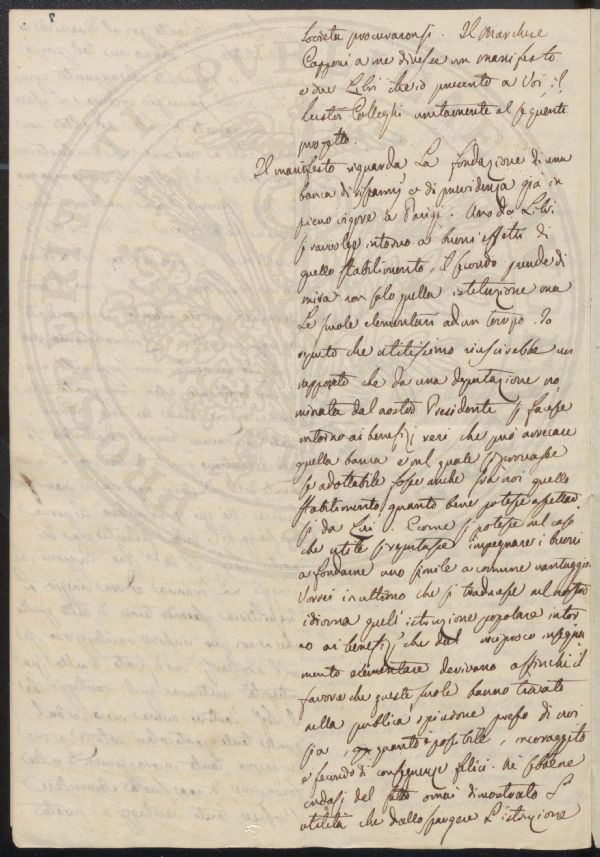 7
Società procuraronsi. Il Marchese
Capponi a me diresse un manifesto
e due Libri che io presento a Voi il
lustri Colleghi unitamente al seguente
progetto.
Il manifesto riguarda La fondazione di una
banca di risparmj e di previdenza già in
pieno vigore a Parigi. Uno de Libri
si ravvolge intorno a' buoni effetti di
quello stabilimento, il secondo prende di
mira non solo quella istituzione ma
Le scuole elementari ad un tempo. Io
reputo che utilissimo riuscirebbe un
rapporto che da una deputazione no
minata dal nostro Presidente si facesse
intorno ai benefizj veri che può arrecare
quella banca e nel quale si provasse
se adottabile fosse anche fra noi quello
stabilimento, quanto bene potesse aspettar
si da Lui. E come si potesse nel caso
che utile si reputasse impegnare i buoni
a fondarne uno simile a comune vantaggio
Vorrei in ultimo che si traducesse nel nostro
idioma quell'istruzione popolare intor
no ai benefizj che dal reciproco insegna
mento elementare derivano affinchè il
favore che queste scuole hanno trovato
nella pubblica opinione presso di noi
sia, quanto è possibile, incoraggito
e fecondo di conseguenze felici. Ne sebbene
cada del tutto omai dimostrato L'
utilità che dallo spargere L'istruzione